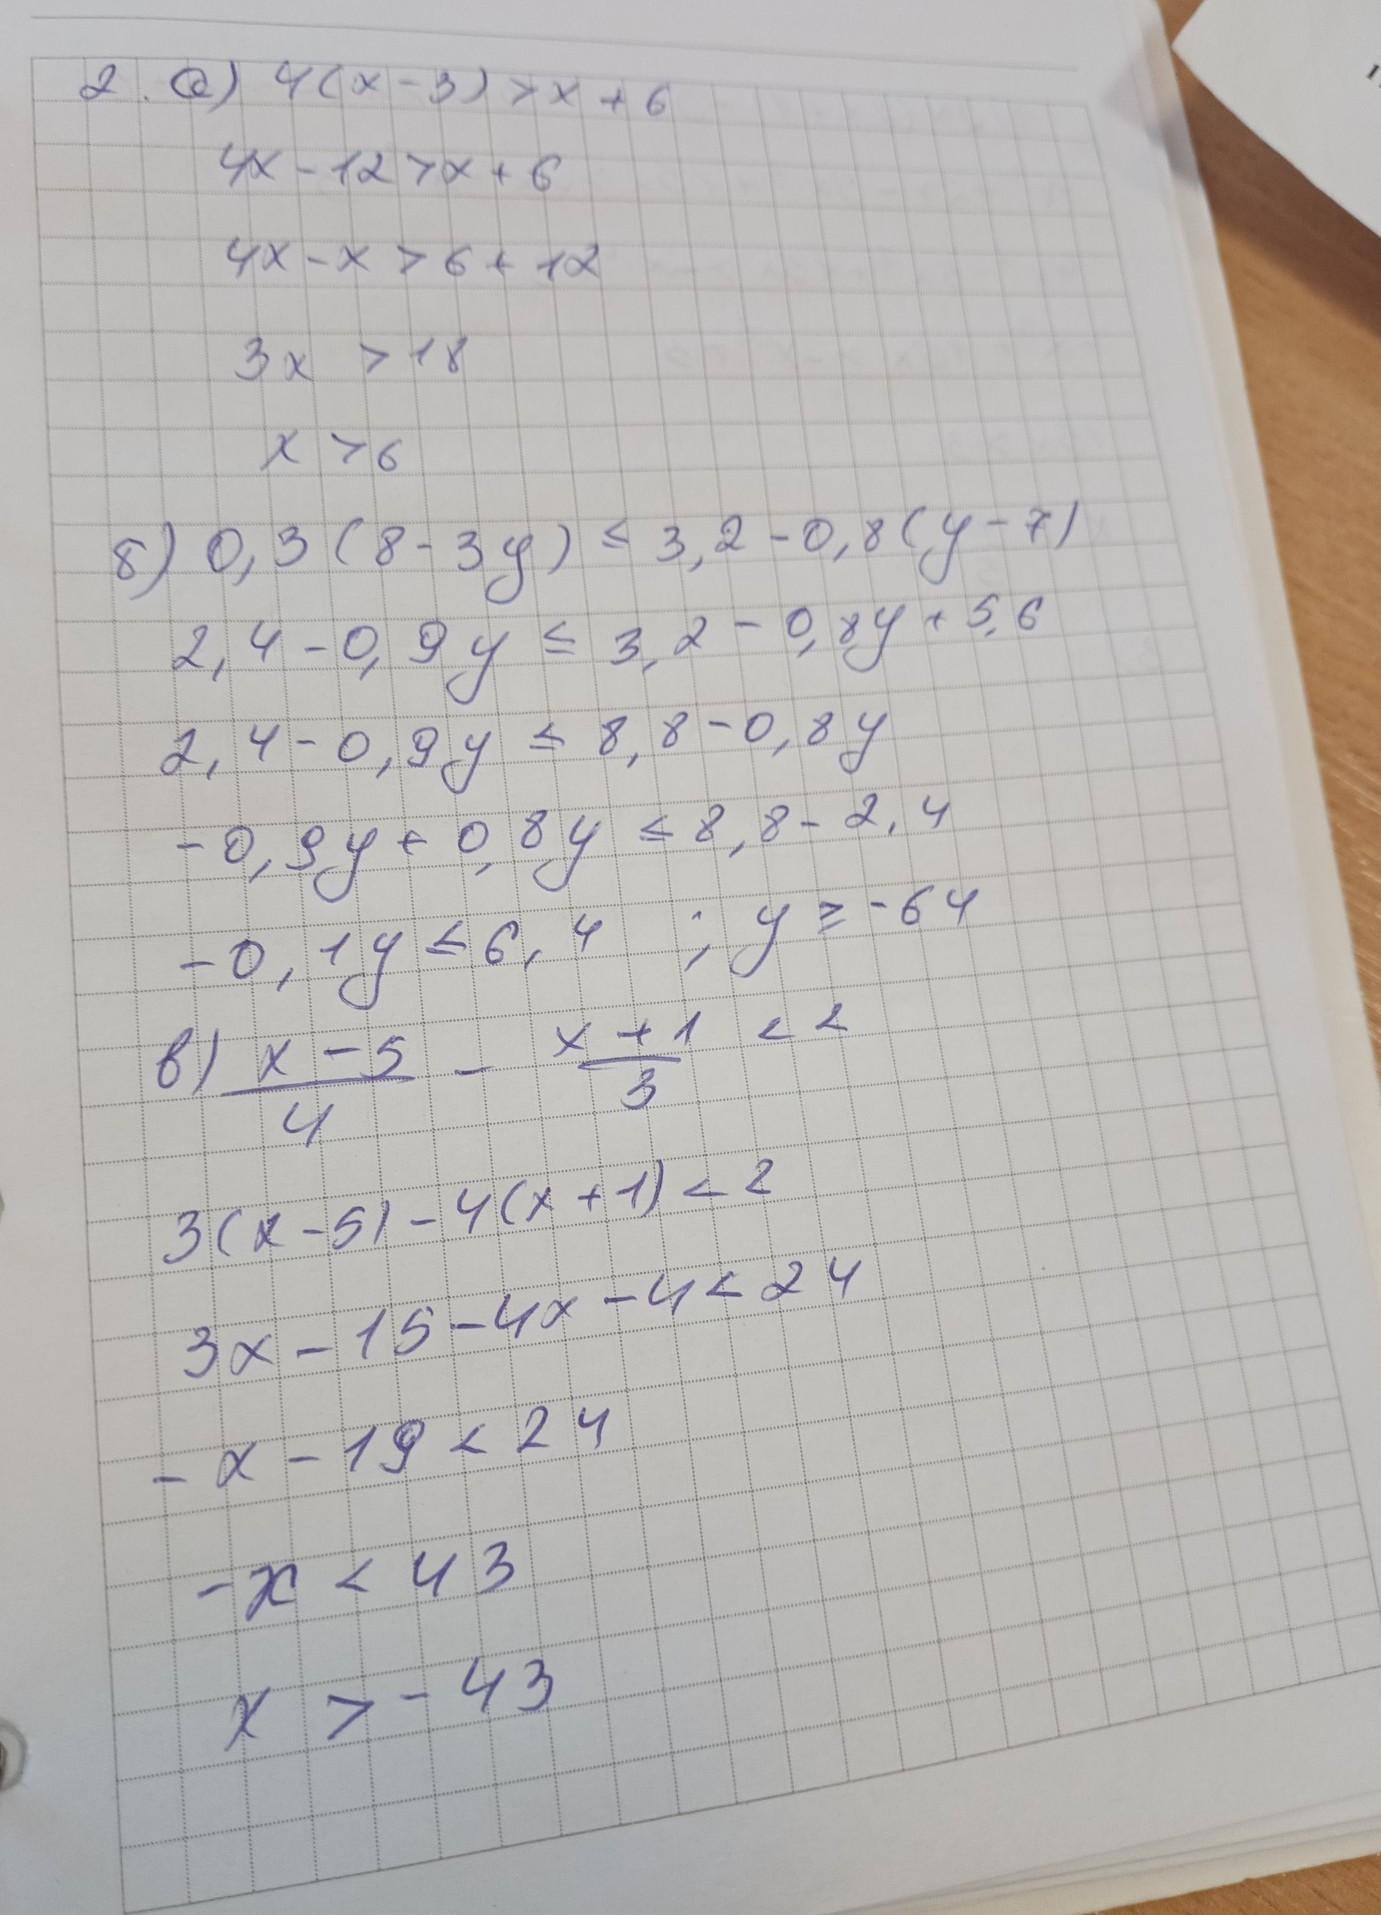 2. а) 4(x-3)>x+6
4x-12>x+6
4x-x>6+12
3x >18
x >6
б) 0,3(8-3y) ≤ 3,2-0,8(y-7)
2,4-0,9y ≤ 3,2-0,8y+5,6
2,4-0,9y ≤ 8,8-0,8y
-0,9y+0,8y ≤ 8,8-2,4
-0,1y ≤ 6,4 ; y ≥ -64
в) (x-5)/4 - (x+1)/3 < 2
3(x-5)-4(x+1)<2
3x-15-4x-4<24
-x-19<24
-x < 43
x > -43